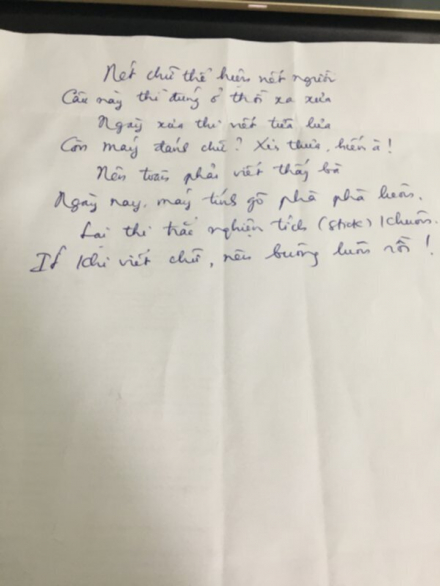 Nét chữ thể hiện nét người
Câu này thì đúng ở thời xa xưa
Ngày xưa thi viết tứa lưa
Còn máy đánh chữ? Xin thưa, hiếm à!
Nên toàn phải viết thấy bà
Ngày nay, máy tính gõ phà phà luôn.
Lại thi trắc nghiệm tích (stick) khuôn.
Ít khi viết chữ, nên buông luôn rồi!